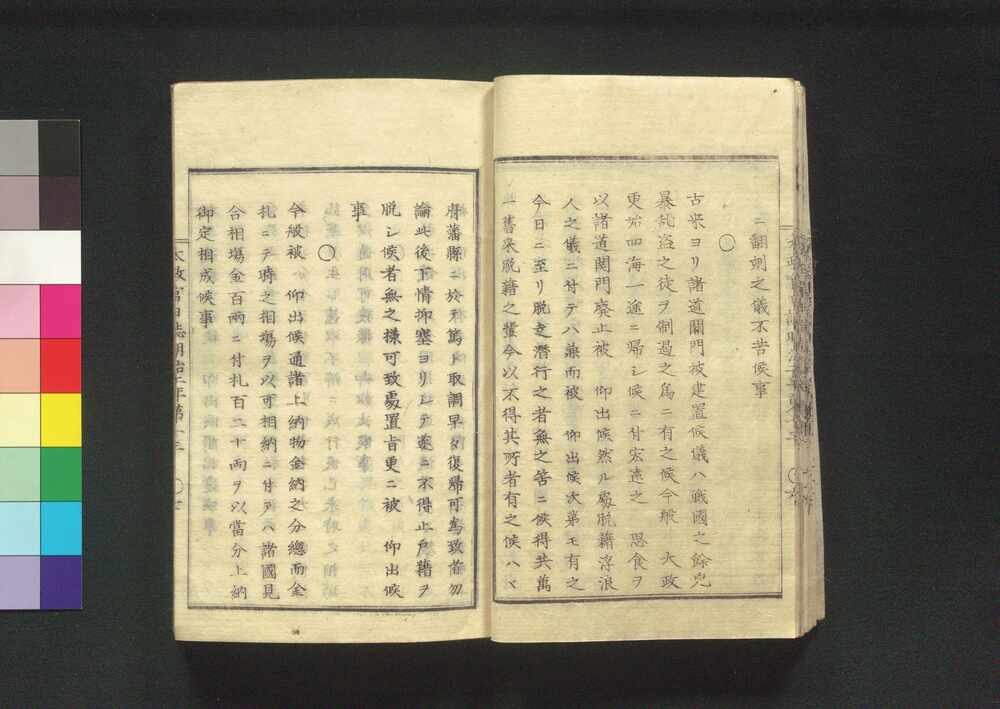 ニ翻刻之儀不苦候事
〇
古来ヨリ諸道關門被建置候儀ハ戦國之餘兇
暴乱盗之徒ヲ制過之為ニ有之候今般　大政
更始四海一途ニ帰シ候ニ付宏遠之　思食ヲ
以諸道関門廃止被　仰出候然ル處脱籍浮浪
人之儀ニ付テハ兼而被　仰出候次第モ有之
今日ニ至リ脱走潜行之者無之筈ニ候得共萬
一舊来脱籍之輩今以不得其所者有之候ハヽ
府藩縣ニ於テ篤ト取調早々復帰可為致者勿
論此後下情抑塞ヨリシテ遂ニ不得止戸籍ヲ
脱シ候者無之様可致處置旨更ニ被　仰出候
事
〇
今般被　仰出候通諸上納物金納之分總而金
札ニテ時之相塲ヲ以可相納ニ付テハ諸國見
合相塲金百両ニ付札百二十両ヲ以當分上納
御定相成候事
太政官日誌明治二年第十三